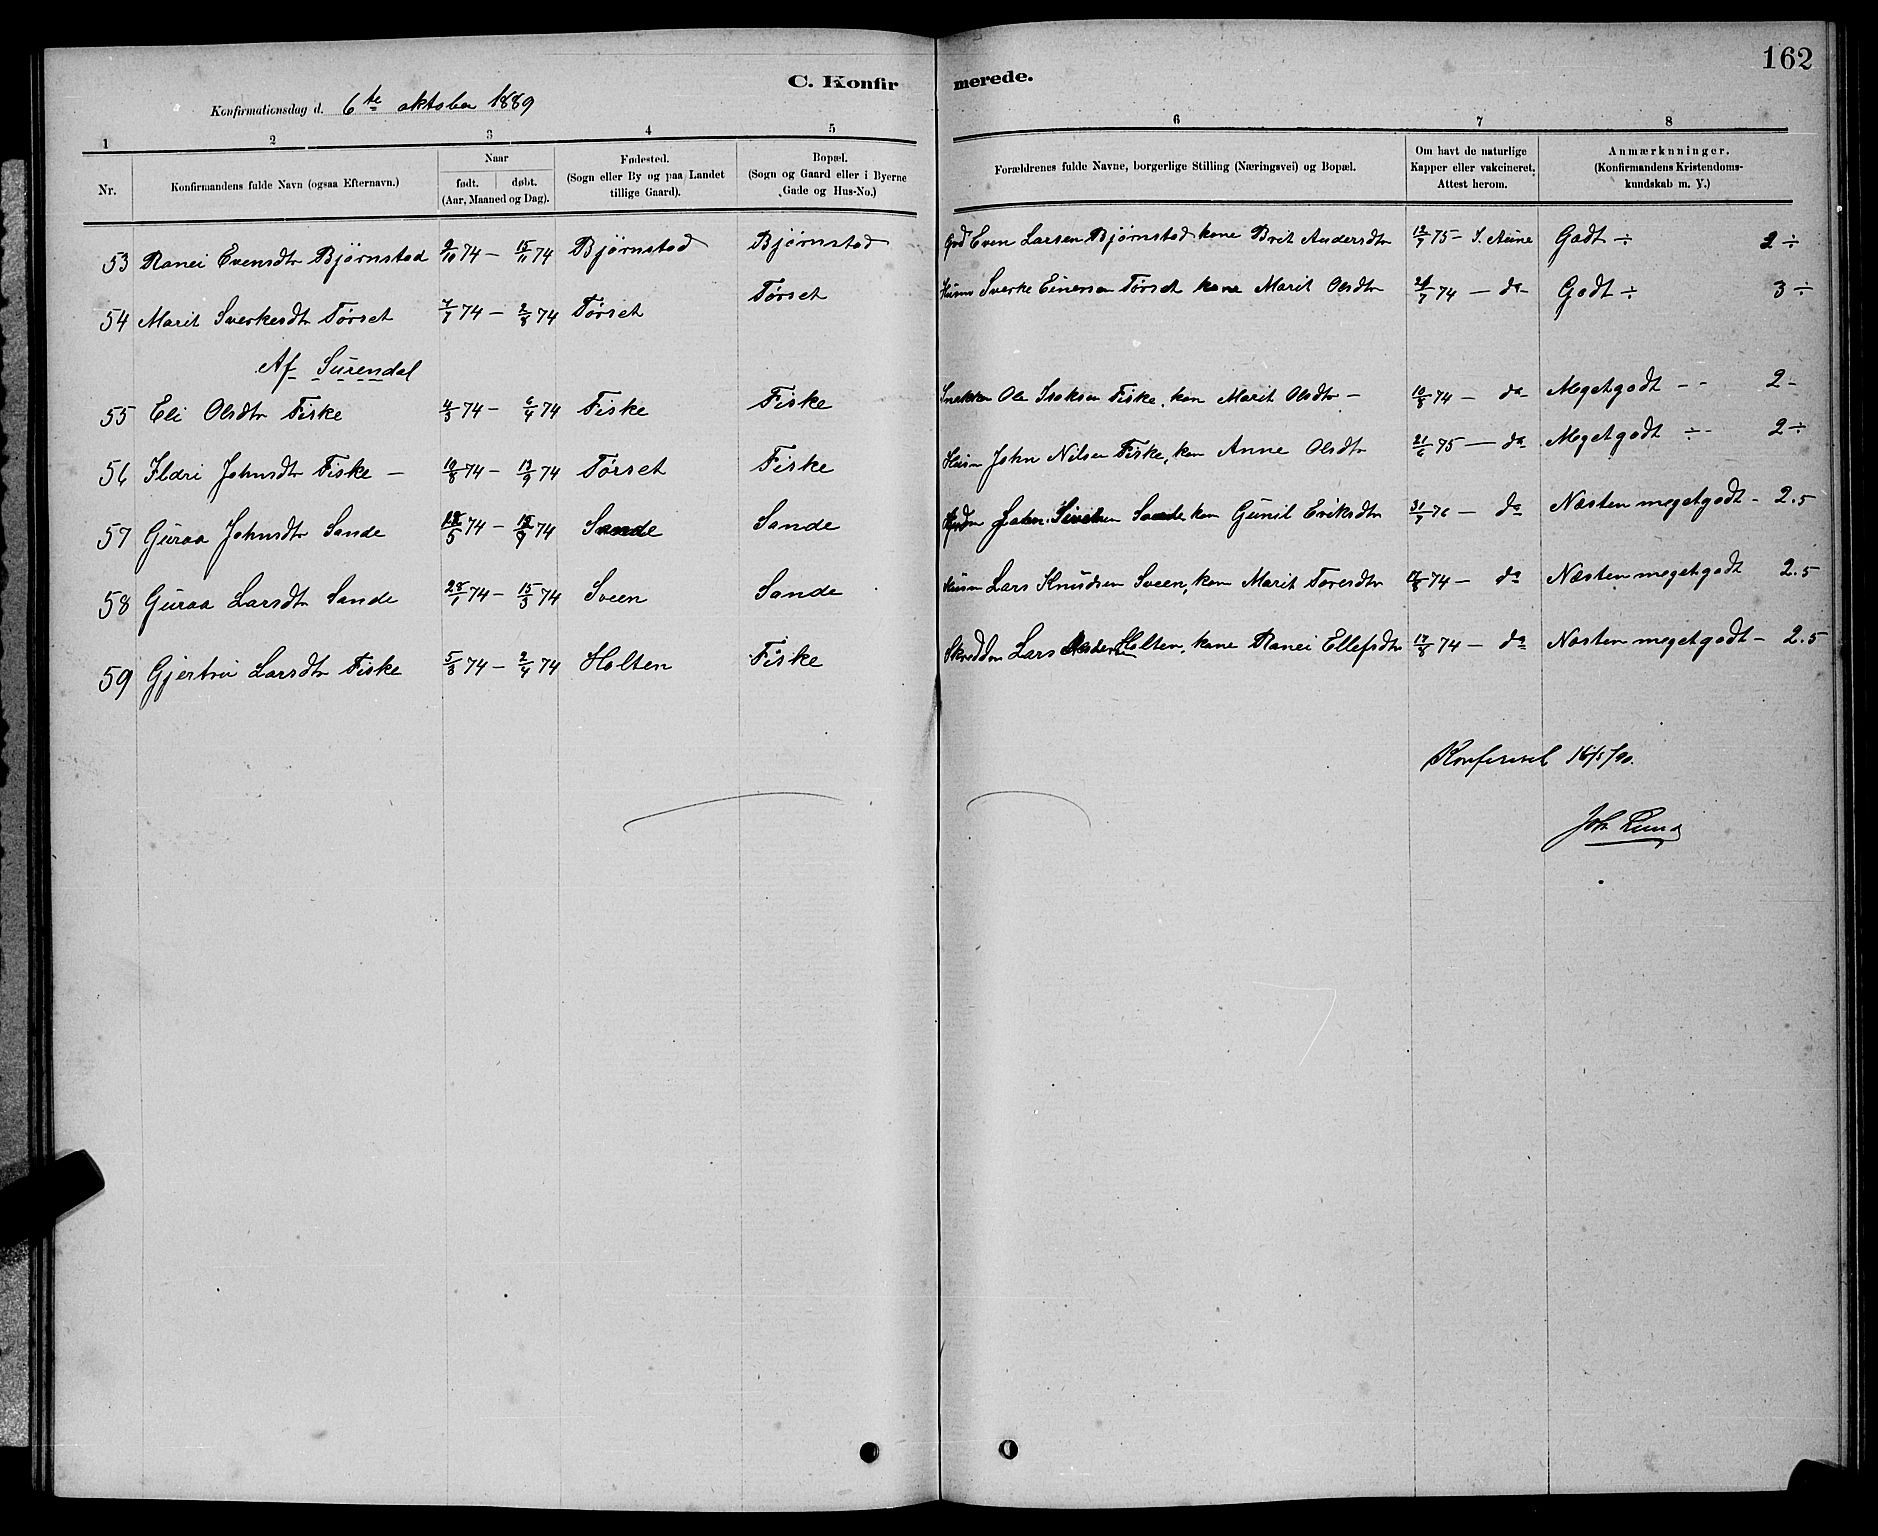 162
C. Konfirmerede.
Konfirmationsdag d. 6te oktober 1889
1 2 3 4 5 6 7 8
Nr. | Konfirmandens fulde Navn (ogsaa Efternavn.) | Naar født. døbt. (Aar, Maaned og Dag). | Fødested. (Sogn eller By og paa Landet tillige Gaard). | Bopæl. (Sogn og Gaard eller i Byerne Gade og Hus-No.) | Forældrenes fulde Navne, borgerlige Stilling (Næringsvei) og Bopæl. | Om havt de naturlige Kapper eller vakcineret. Attest herom. | Anmærkninger. (Konfirmandens Kristendomskundskab m. V.)
53 Ranei Evensdtr Bjørnstad 9/10 74 – 15/11 74 Bjørnstad Bjørnstad Grd Even Larsen Bjørnstad kone Brit Andersdtr 12/7 75 – S. Aune Godt ÷ 2 ÷
54 Marit Sverkesdtr Tørset 7/7 74 – 2/8 74 Tørset Tørset Husm Sverke Einersen Tørset kone Marit Olsdtr 74 – do Godt ÷ 3 ÷
Af Surendal
55 Eli Olsdtr Fiske 4/3 74 – 6/4 74 Fiske Fiske Snekker Ole Isaksen Fiske, kon Marit Olsdtr – 10/8 74 – do Megetgodt – - 2 -
56 Ildri Johnsdtr Fiske – 19/8 74 – 13/9 74 Tørset Fiske Husm John Nilsen Fiske, kon Anne Olsdtr 21/6 75 – do Megetgodt ÷ - 2 ÷
57 Guraa Johnsdtr Sande 74 – 74 Sande Sande John Sivertsen Sande kon Gunil Eriksdtr 31/7 76 – do Næsten megetgodt – 2.5
58 Guraa Larsdtr Sande 28/1 74 – 15/3 74 Sveen Sande Husm Lars Knudsen Sveen, kon Marit Toresdtr 74 – do Næsten megetgodt 2.5
59 Gjertru Larsdtr Fiske 5/3 74 – 2/4 74 Holten Fiske Skrædder Lars Holten, kone Ranei Ellefsdtr 17/8 74 – do Næsten megetgodt – 2.5
Konfereret 16/5/90.
Joh Lund